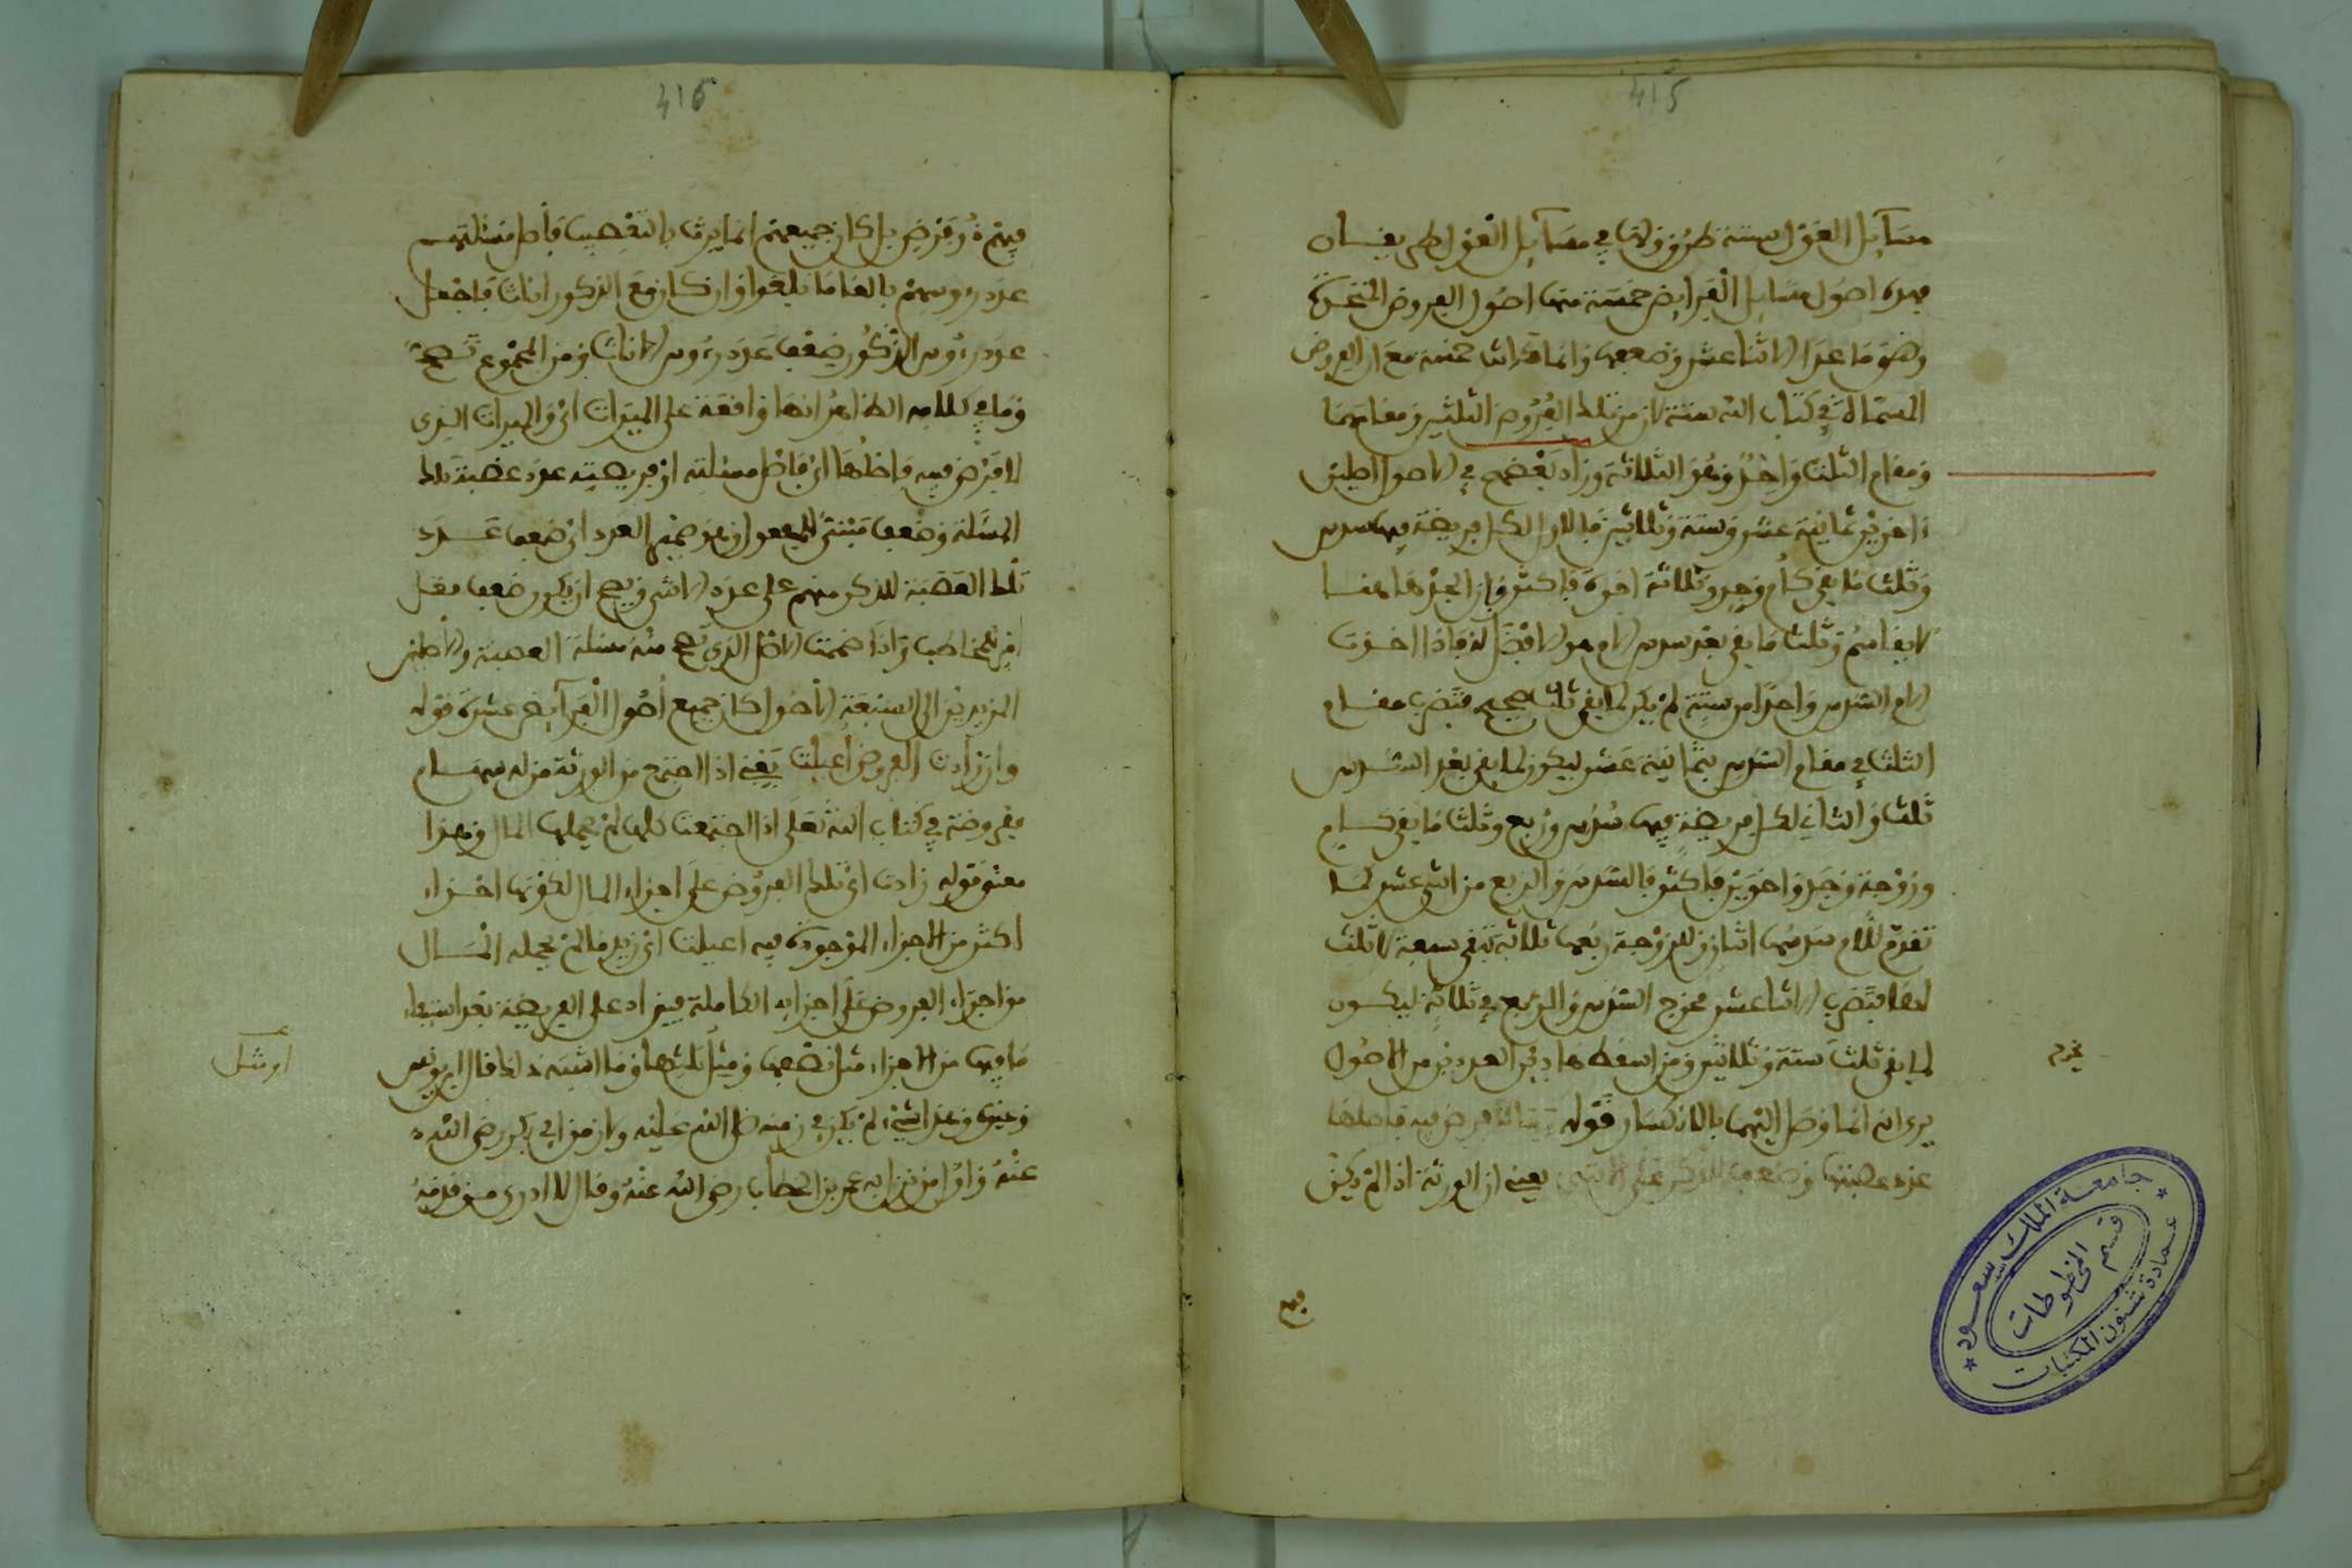 415
مسآيل العول ستة طرو ولها في مسآيل العول
فهذه اصول مسايل الفرايض خمسة منها اصول الفروض
وهو ما عدا الاثنا عشر وضعفها وانما كانت خمسة مع ان الفروض
المسماة في كتاب الله ستة لان من تلك الفروض الثلثين ومقامهما
ومقام الثلث واحد وهو الثلاثة وزاد بعضهم في الاصول اصلين
اخرين ثمانية عشر وستة وثلاثين فالاول لكل فريضة فيها سدس
وثلث ما بقي كأم وجد وثلاثة اخوة فاكثر فان الجد هنا
لا يقاسم وثلث ما بقي بعد سدس الام هو الافضل له فاذا اخذت
الام السدس واحدا من ستة لم يكن لما بقي ثلث صحيح فتضرب مقام
الثلث في مقام السدس بثمانية عشر ليكون لما بقي بعد السدس
ثلث والثاني لكل فريضة فيها سدس وربع وثلث ما بقي كام
وزوجة وجد واخوين فاكثر فالسدس والربع من اثني عشر كما
تقدم للام سدسها اثنان وللزوجة ربعها ثلاثة تبقى سبعة لا ثلث
لها فتضرب الاثنا عشر مخرج السدس والربع في ثلاثة ليكون
لما بقي ثلث ستة وثلاثين ومن اسقط هاذين العددين من الاصول
يرى انه انما وصل اليهما بالانكسار قوله فرض فيه فاصلها
عدد عصبتها وضعف للذكر على الانثى يعني ان الورثة اذا لم يكن
فيهم
مخرج
جامعة الملك سعود
عمادة شئون المكتبات
قسم المخطوطات
416
فيهم ذو فرض بل كان جميعهم انما يرث بالتعصيب فاصل مسئلتهم
عدد رءوسهم بالغا ما بلغوا وان كان مع الذكور اناث فاجعل
عدد رءوس الذكور ضعف عدد رءوس الاناث ومن المجموع تصح
وما في كلامه الظاهر انها واقعة على الميراث اي والميراث الذي
لا فرض فيه فاصلها اي فاصل مسئلته او فريضته عدد عصبة تلك
المسئلة وضعف مبني للمفعول وهو ضمير العدد اي ضعف عدد
تلك العصبة للذكر منهم على عدد الانثى ويصح ان يكون ضعف فعل
امر للمخاطب واذا ضممت الاصل الذي تصح منه مسئلة العصبة والاصلين
المزيدين الى السبعة الاصول كان جميع اصول الفرآيض عشرة قوله
وان زادت الفروض اعيلت يعني اذا اجتمع من الورثة من له سهام
مفروضة في كتاب الله تعلى اذا اجتمعت كلها لم يحملها المال وهذا
معنى قوله زادت اي تلك الفروض على اجزاء المال لكونها اجزاء
اكثر من الاجزاء الموجودة فيه اعيلت اي زيد ما لم يحمله المال
من اجزاء الفروض على اجزايه الكاملة فيزاد على الفريضة بعد استيفاء
ما فيها من الاجزاء مثل نصفها ومثل ثلثها وما اشبه ذلك قال ابن يونس
وغيره وهذا شيء لم يكن في زمنه صلى الله عليه ولا زمن ابي بكر رضي الله
عنه واول من نزل به عمر بن الخطاب رضي الله عنه وقال لا ادري من قدمه
او مثل